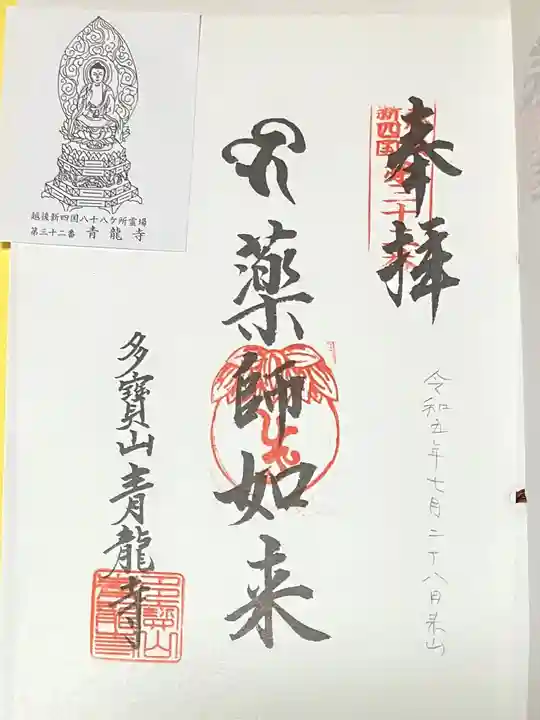 奉拝
新四国
令和五年七月二十八日来山
薬師如来
多寶山青龍寺
越後新四国八十八ケ所霊場
第三十二番 青龍寺